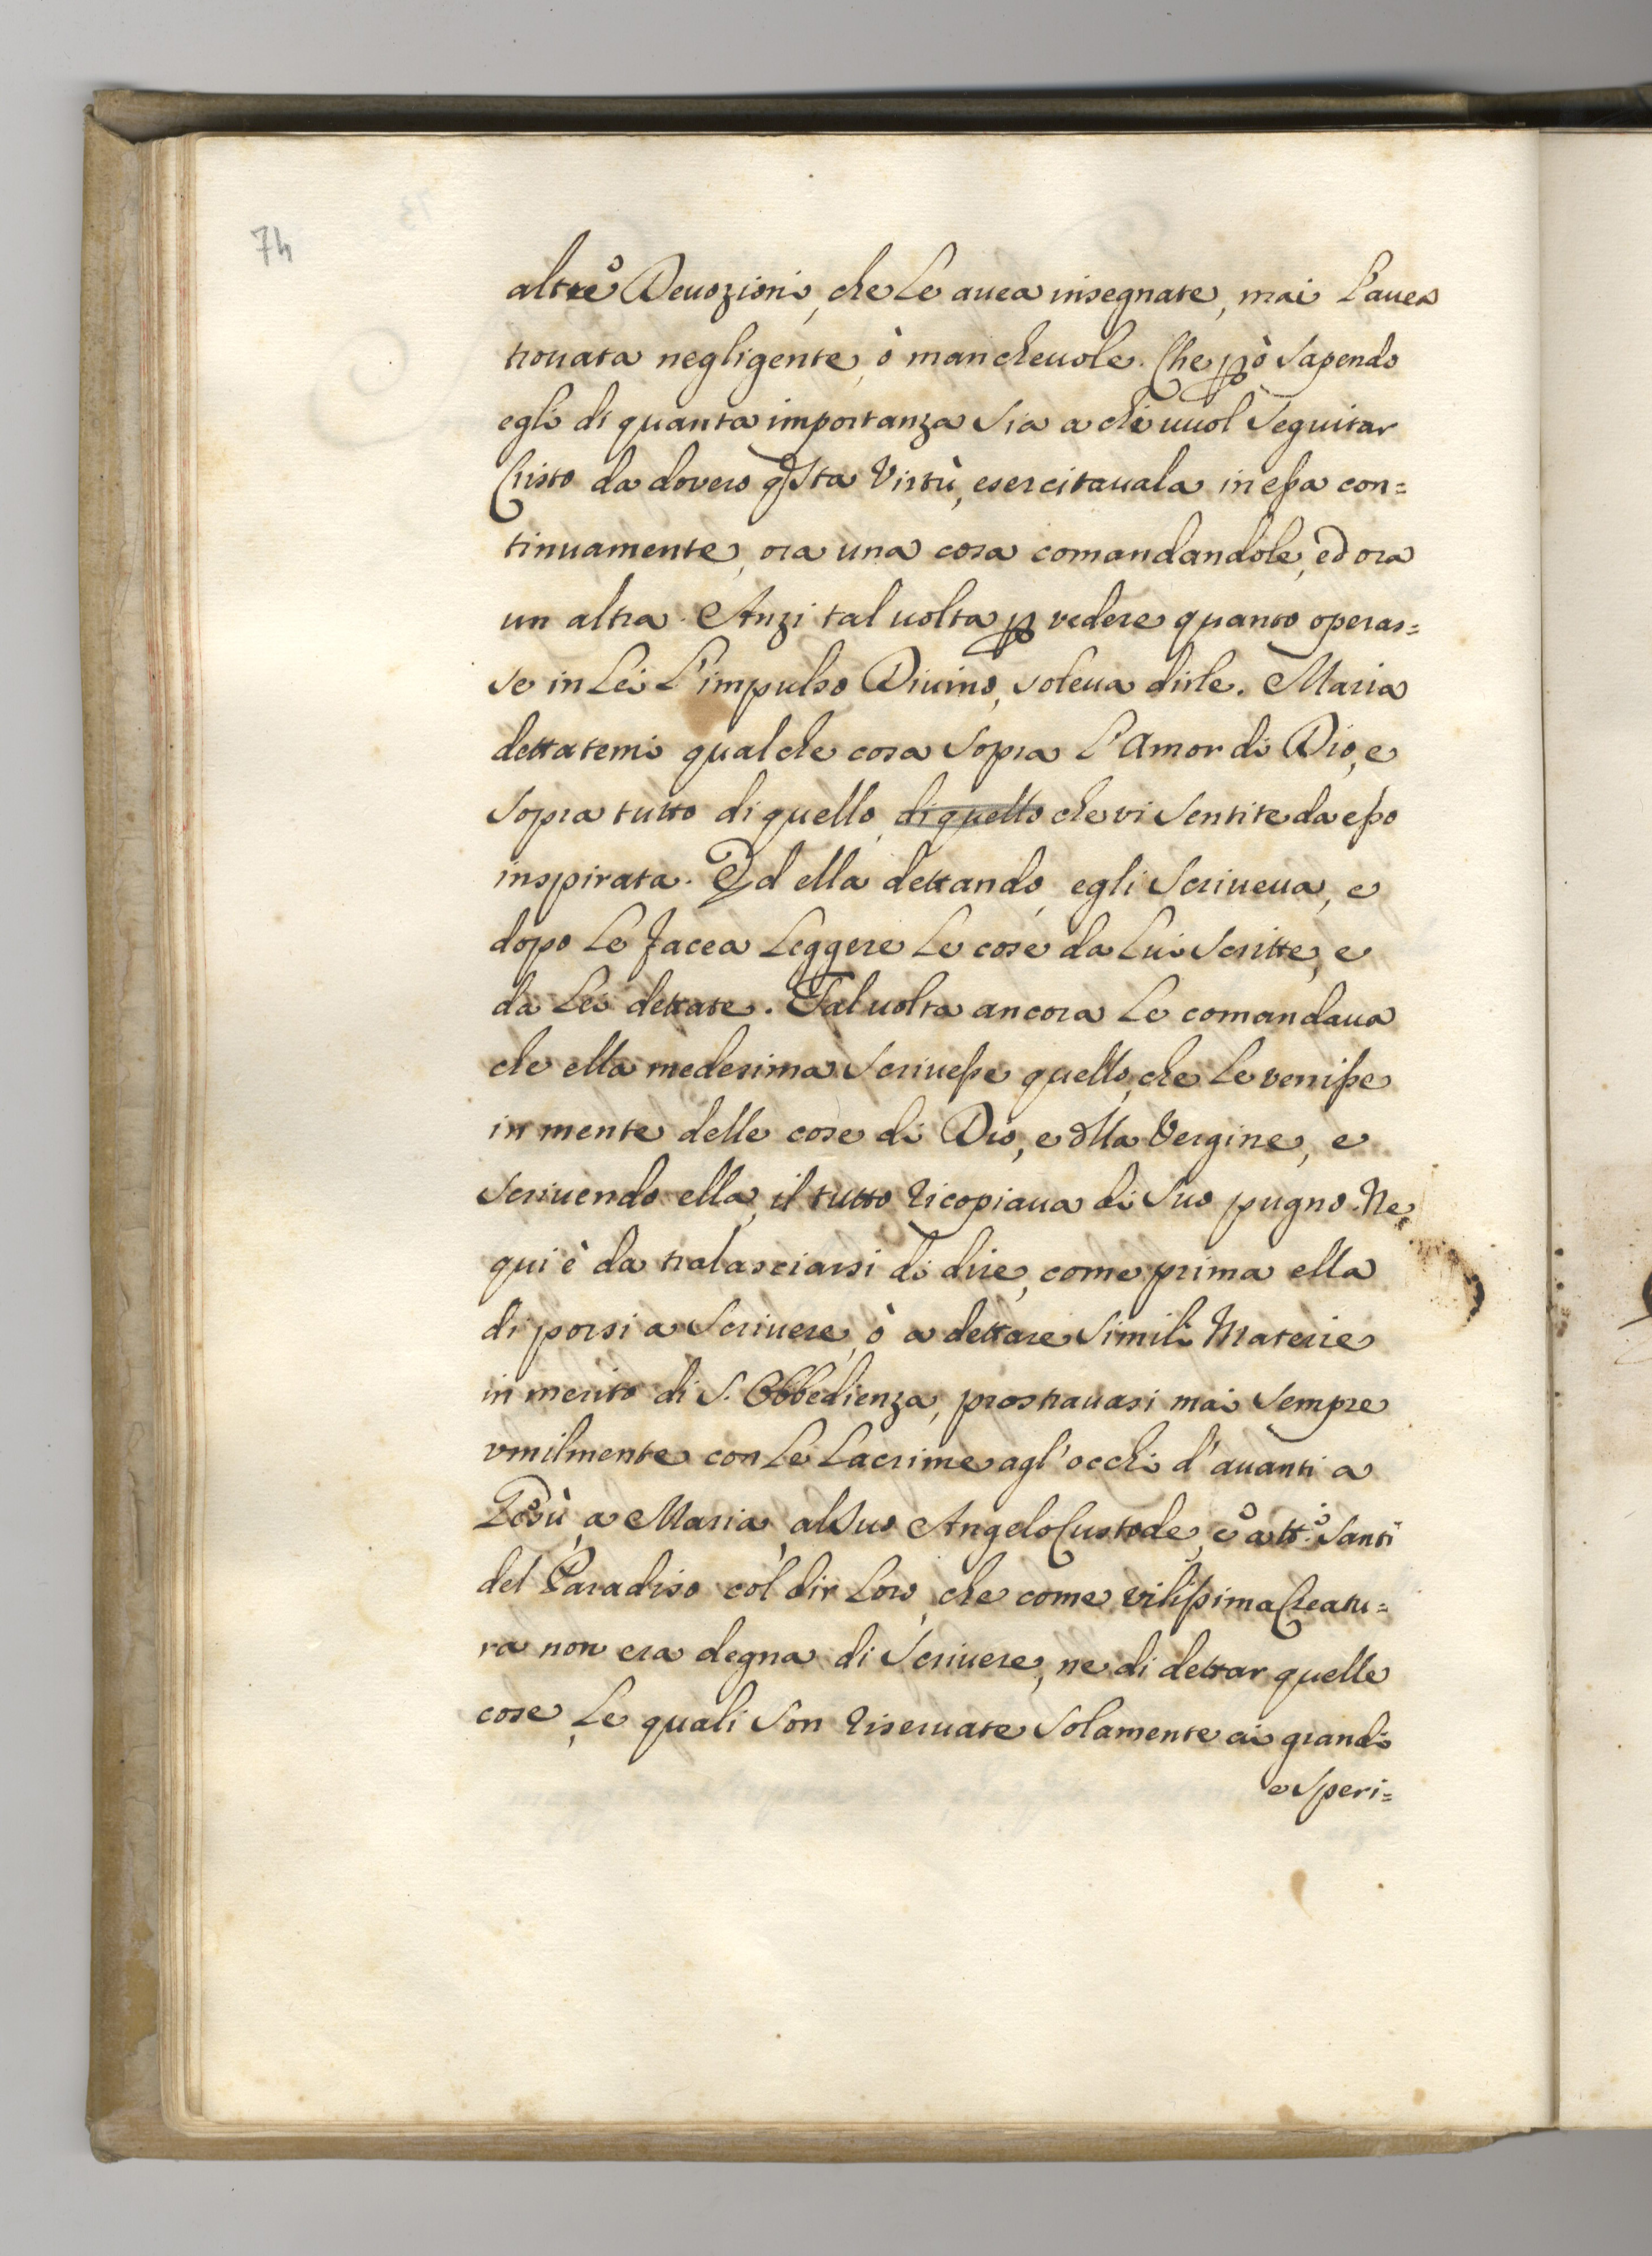 74
altre Deuozioni, che le auea insegnate, mai l'auea
trouata negligente, ò mancheuole. Che p̱ò sapendo
egli di quanta importanza sia a chi vuol seguitar
Cristo da dovero qſta Virtù, esercitauala in eſsa con=
tinuamente, ora una cosa comandandole, ed ora
un altra. Anzi tal uolta p̱ vedere quanto operas=
se in Lei l'impulso Diuino, soleua dirle. Maria
dettatemi qualche cosa sopra l'Amor di Dio, e
sopra tutto di quello, di quello che vi sentite da eſso
inspirata. Ed ella dettando, egli scriueua, e
dopo le facea leggere le cose da lui scritte, e
da lei dettate. Tal uolta ancora le comandaua
che ella medesima scriueſse quello, che le veniſse
in mente delle cose di Dio, e dlla Vergine, e
scriuendo ella, il tutto ricopiaua di suo pugno. Ne
qui è da tralasciarsi di dire, come prima ella
di porsi a scriuere, ò a dettare simili Materie
in merito di S. Obbedienza, prostrauasi mai sempre
vmilmente con le lacrime agl'occhi d'auanti a
Gesù, a Maria, al suo Angelo Custode, e a tt.i Santi
del Paradiso col dir loro, che come viliſsima Creatu=
ra non era degna di scriuere, ne di dettar quelle
cose, le quali son riseruate solamente ai grandi
e speri=